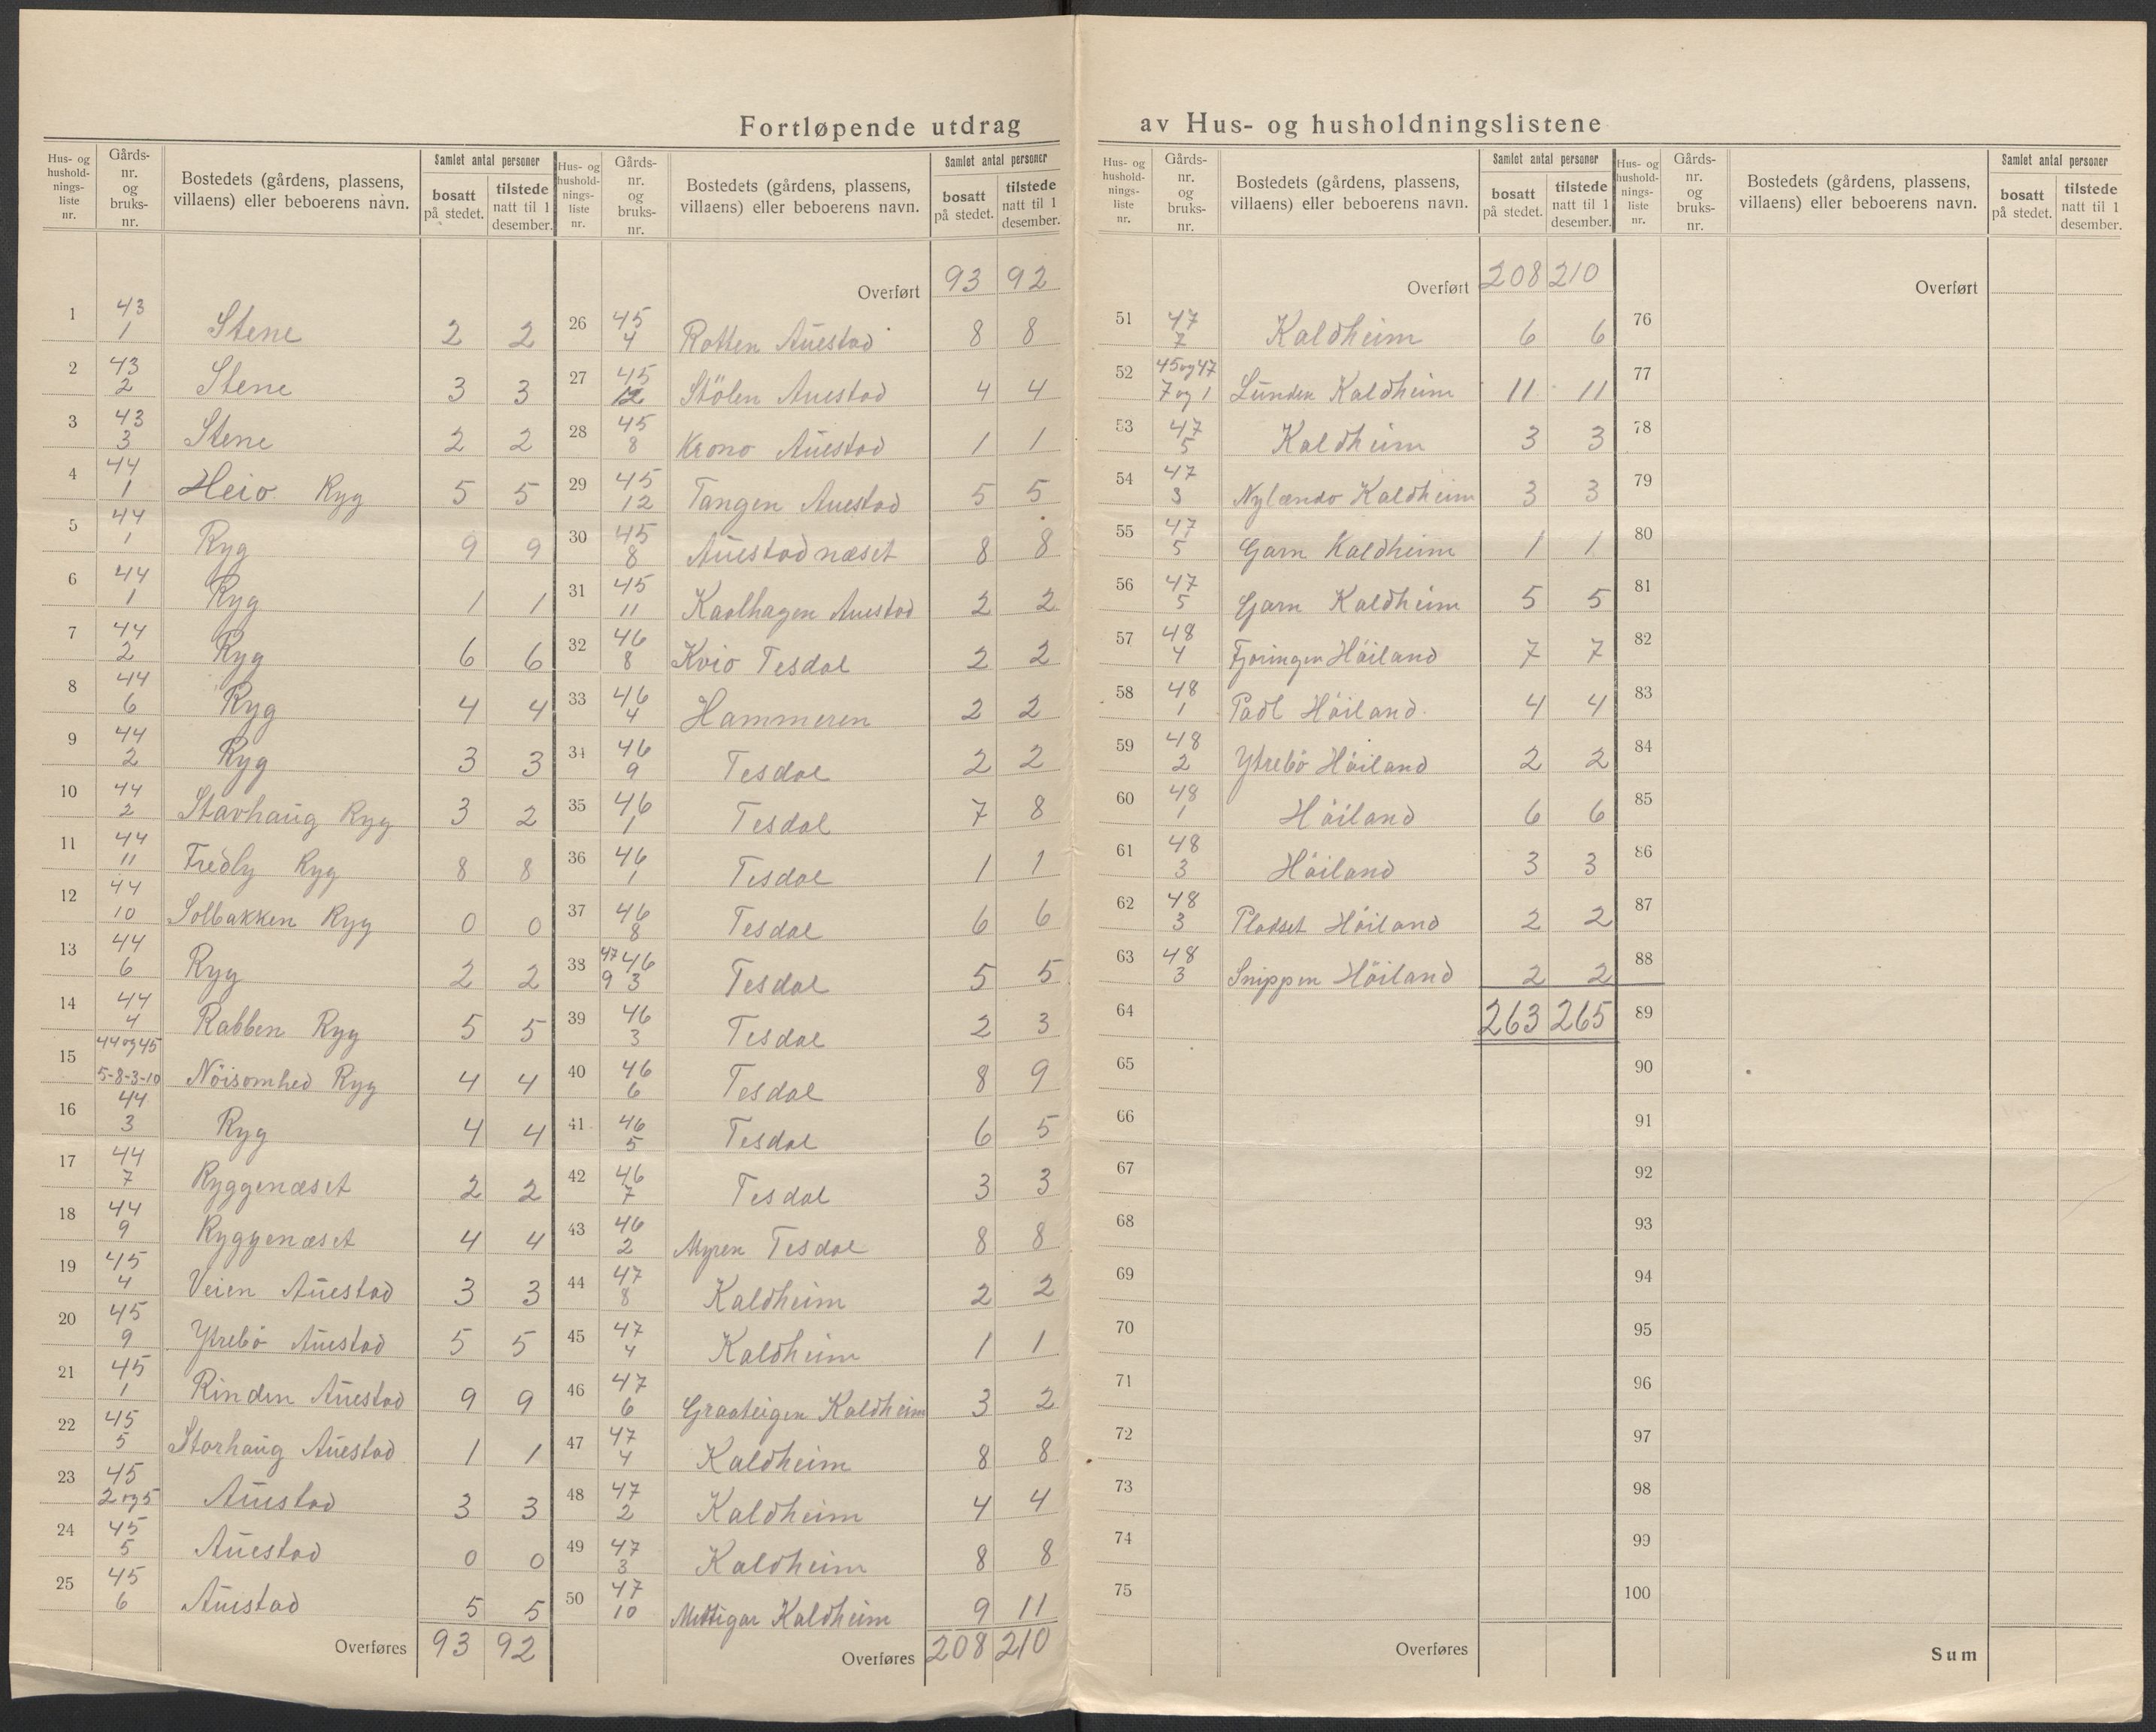 Fortløpende utdrag av Hus- og husholdningslistene
Hus- og husholdningsliste nr. | Gårds-nr. og bruks-nr. | Bostedets (gårdens, plassens, villaens) eller beboerens navn. | Samlet antal personer: bosatt på stedet. | tilstede natt til 1 desember.
1 43 1 Stene 2 2
2 43 2 Stene 3 3
3 43 3 Stene 2 2
4 44 1 Heio Ryg 5 5
5 44 1 Ryg 9 9
6 44 1 Ryg 1 1
7 44 2 Ryg 6 6
8 44 6 Ryg 4 4
9 44 2 Ryg 3 3
10 44 2 Stavhaug Ryg 3 2
11 44 11 Fredly Ryg 8 8
12 44 10 Solbakken Ryg 0 0
13 44 6 Ryg 2 2
14 44 4 Rabben Ryg 5 5
15 44 og 45 5-8-3-10 Nöisomhed Ryg 4 4
16 44 3 Ryg 4 4
17 44 7 Ryggenæset 2 2
18 44 9 Ryggenæset 4 4
19 45 4 Veien Auestad 3 3
20 45 9 Ytrebö Auestad 5 5
21 45 1 Rinden Auestad 9 9
22 45 5 Storhaug Auestad 1 1
23 45 2 og 5 Auestad 3 3
24 45 5 Auestad 0 0
25 45 6 Auestad 5 5
Overføres 93 92
Hus- og husholdningsliste nr. | Gårds-nr. og bruks-nr. | Bostedets (gårdens, plassens, villaens) eller beboerens navn. | Samlet antal personer: bosatt på stedet. | tilstede natt til 1 desember.
Overført 93 92
26 45 4 Rotten Auestad 8 8
27 45 12 Stölen Auestad 4 4
28 45 8 Krono Auestad 1 1
29 45 12 Tangen Auestad 5 5
30 45 8 Auestadnæset 8 8
31 45 11 Kaalhagen Auestad 2 2
32 46 8 Kvio Tesdal 2 2
33 46 4 Hammeren 2 2
34 46 9 Tesdal 2 2
35 46 1 Tesdal 7 8
36 46 1 Tesdal 1 1
37 46 8 Tesdal 6 6
38 47 46 9 3 Tesdal 5 5
39 46 3 Tesdal 2 3
40 46 6 Tesdal 8 9
41 46 5 Tesdal 6 5
42 46 7 Tesdal 3 3
43 46 2 Myren Tesdal 8 8
44 47 8 Kaldheim 2 2
45 47 4 Kaldheim 1 1
46 47 6 Graateigen Kaldheim 3 2
47 47 4 Kaldheim 8 8
48 47 2 Kaldheim 4 4
49 47 3 Kaldheim 8 8
50 47 10 Kaldheim 9 11
Overføres 208 210
Hus- og husholdningsliste nr. | Gårds-nr. og bruks-nr. | Bostedets (gårdens, plassens, villaens) eller beboerens navn. | Samlet antal personer: bosatt på stedet. | tilstede natt til 1 desember.
Overført 208 210
51 47 7 Kaldheim 6 6
52 45 og 47 7 og 1 Lunden Kaldheim 11 11
53 47 5 Kaldheim 3 3
54 47 3 Nylændo Kaldheim 3 3
55 47 5 Garn Kaldheim 1 1
56 47 5 Garn Kaldheim 5 5
57 48 4 Höiland 7 7
58 48 1 Padl Höiland 4 4
59 48 2 Ytrebö Höiland 2 2
60 48 1 Höiland 6 6
61 48 3 Höiland 3 3
62 48 3 Pladset Höiland 2 2
63 48 3 Snippen Höiland 2 2
64 263 265
65
66
67
68
69
70
71
72
73
74
75
Overføres
Hus- og husholdningsliste nr. | Gårds-nr. og bruks-nr. | Bostedets (gårdens, plassens, villaens) eller beboerens navn. | Samlet antal personer: bosatt på stedet. | tilstede natt til 1 desember.
Overført
76
77
78
79
80
81
82
83
84
85
86
87
88
89
90
91
92
93
94
95
96
97
98
99
100
Sum